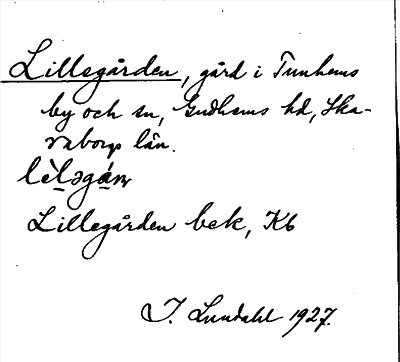 Lillegården, gård i Tunhems
by och sn, Gudhems hd, Ska-
raborgs län.
Lillegården bek, K6
I. Lundahl 1927.